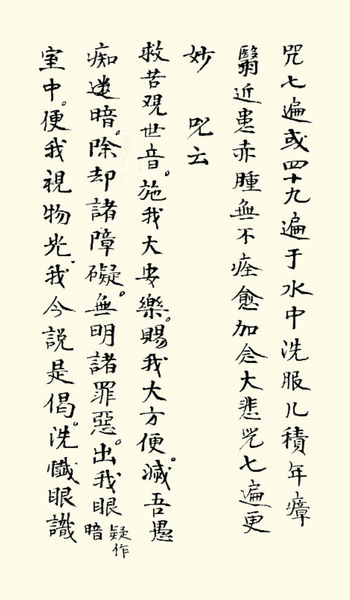 咒七遍或四十九遍于水中洗服凡積年瘴
翳近患赤腫無不痊愈加念大悲咒七遍更
妙 咒云
救苦覌世音。施我大安樂。賜我大方便。滅吾愚
痴迷暗。除却諸障礙。無明諸罪惡。出我眼 疑作暗
室中。使我視物光。我今説是偈。洗懺眼識